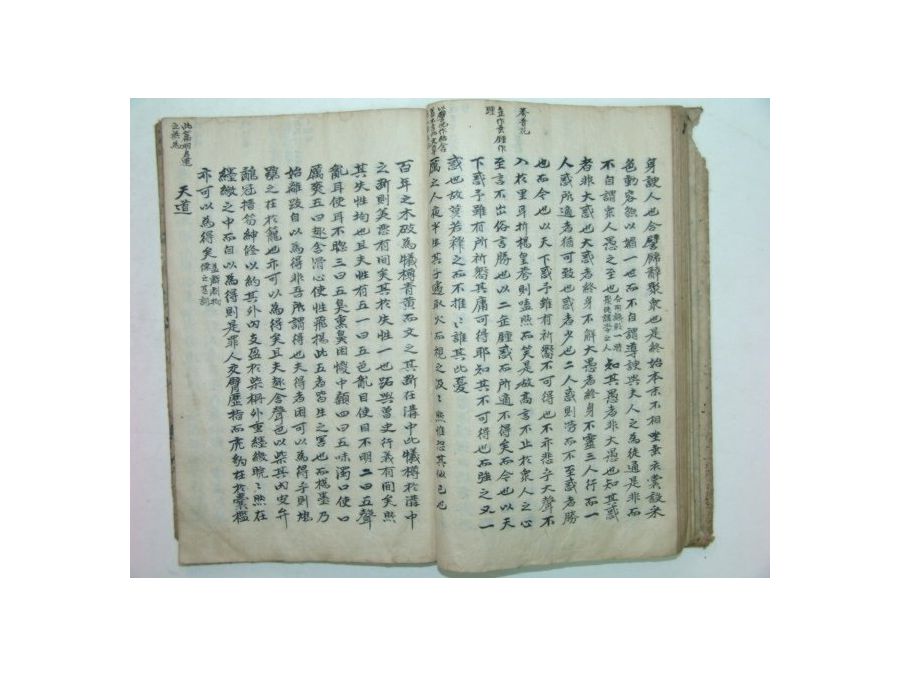 身諛人也合譬飾辭聚衆也是終始本末不相坐垂衣裳設采
色動容貌以媚一世而不自謂導諛與夫人之為徒通是非而
不自謂衆人愚之至也知其愚者非大愚也知其惑
者非大惑也大惑者終身不解大愚者終身不靈三人行而一
人惑所適者猶可致也惑者少也二人惑則勞而不至惑者勝
也而今也以天下惑予雖有祈嚮不可得也不亦悲乎大聲不
入於里耳折楊皇荂則嗑然而笑是故高言不止於衆人之心
至言不出俗言勝也以二缶鍾惑而所適不得矣而今也以天
下惑予雖有所祈嚮其庸可得耶知其不可得也而強之又一
惑也故莫若釋之而不推〻誰其比憂
厲之人夜半生其子遽取火而視之汲〻然惟恐其似己也
百年之木破為犧樽青黃而文之其斷在溝中比犧樽於溝中
之斷則美惡有間矣其於失性一也跖與曾史行義有間矣然
其失性均也且夫性有五一曰五色亂目使目不明二曰五聲
亂耳使耳不聰三曰五臭熏鼻困惾中顙四曰五味濁口使口
厲爽五曰趣舍滑心使性飛揚此五者皆生之害也而楊墨乃
始離跂自以為得非吾所謂得也夫得者困可以為得乎則鳩
鴞之在於籠也亦可以為得矣且夫趣舍聲色以柴其內皮弁
鷸冠搢笏紳修以約其外內支盈於柴柵外重纆繳睆〻然在
纆繳之中而自以為得則是罪人交臂歷指而虎豹在於囊檻
亦可以為得矣
天道